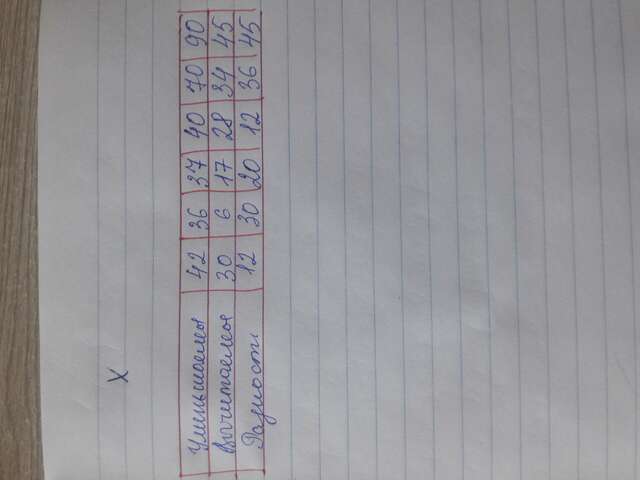 х
Уменьшаемые 42 36 37 40 70 90
Вычитаемое 30 6 17 28 34 45
Разности 12 30 20 12 36 45